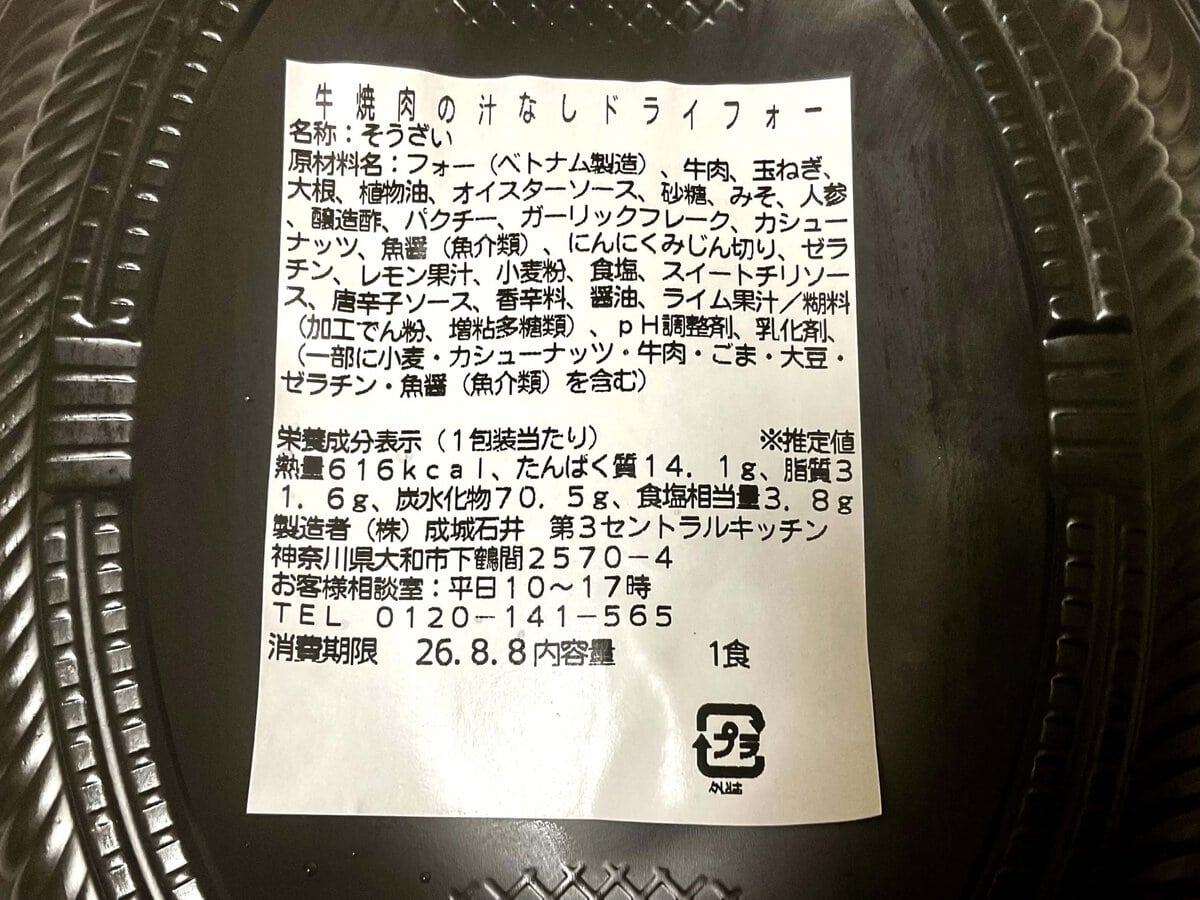 牛焼肉の汁なしドライフォー
名称：そうざい
原材料名：フォー（ベトナム製造）、牛肉、玉ねぎ、
大根、植物油、オイスターソース、砂糖、みそ、人参
、醸造酢、パクチー、ガーリックフレーク、カシュー
ナッツ、魚醤（魚介類）、にんにくみじん切り、ゼラ
チン、レモン果汁、小麦粉、食塩、スイートチリソー
ス、唐辛子ソース、香辛料、醤油、ライム果汁／糊料
（加工でん粉、増粘多糖類）、ｐＨ調整剤、乳化剤、
（一部に小麦・カシューナッツ・牛肉・ごま・大豆・
ゼラチン・魚醤（魚介類）を含む）
栄養成分表示（１包装当たり） ※推定値
熱量６１６ｋｃａｌ、たんぱく質１４．１ｇ、脂質３
１．６ｇ、炭水化物７０．５ｇ、食塩相当量３．８ｇ
製造者（株）成城石井 第３セントラルキッチン
神奈川県大和市下鶴間２５７０－４
お客様相談室：平日１０～１７時
ＴＥＬ ０１２０－１４１－５６５
消費期限 26.8.8 内容量 1食
プラ
外装